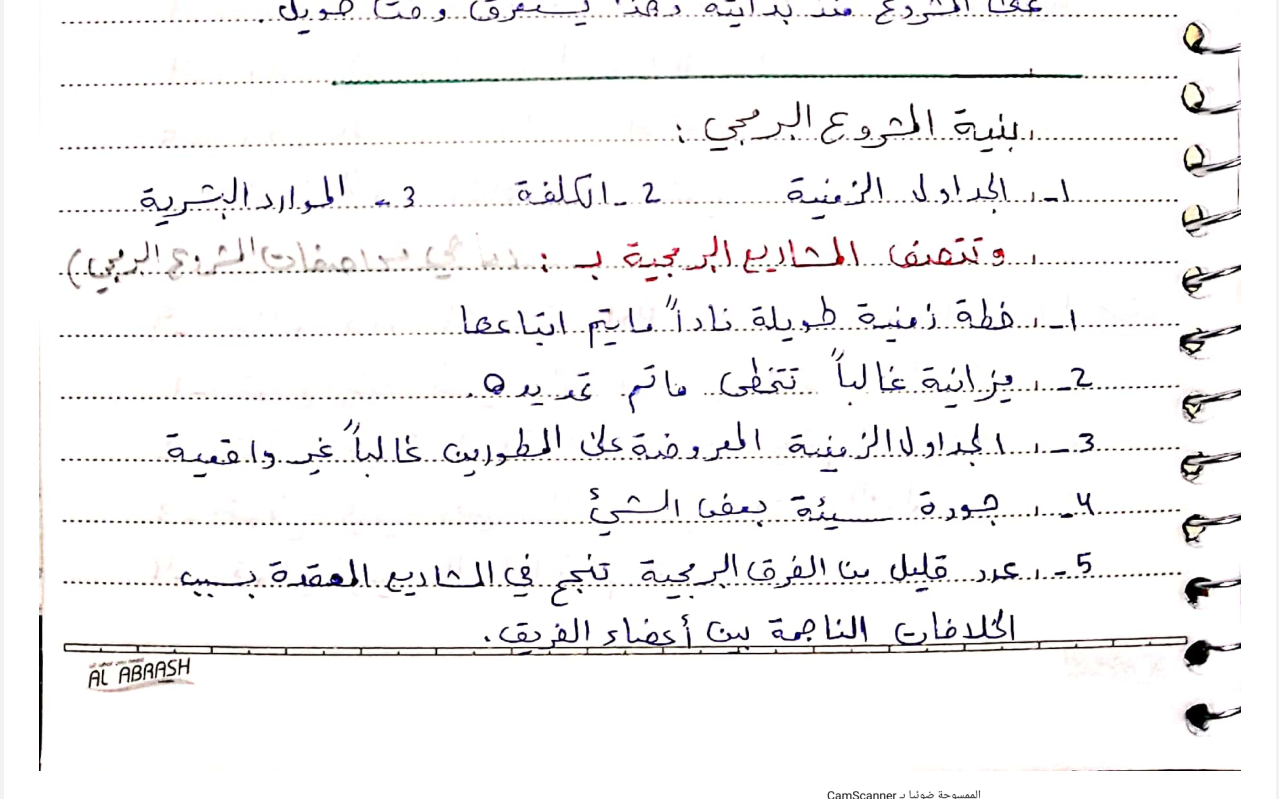 على المشروع منذ بدايته وهذا يستغرق وقتاً طويل.
بنية المشروع البرمجي :
1- الجداول الزمنية 2- الكلفة 3- الموارد البشرية
وتتصف المشاريع البرمجية بـ : (ما هي مواصفات المشروع البرمجي)
1- خطة زمنية طويلة نادراً ما يتم اتباعها
2- ميزانية غالباً تتخطى ما تم تحديده.
3- الجداول الزمنية المعروضة على المطورين غالباً غير واقعية
4- جودة سيئة بعض الشئ
5- عدد قليل من الفرق البرمجية تنجح في المشاريع المعقدة بسبب
الخلافات الناجمة بين أعضاء الفريق.
AL ABRASH
الممسوحة ضوئيا بـ CamScanner